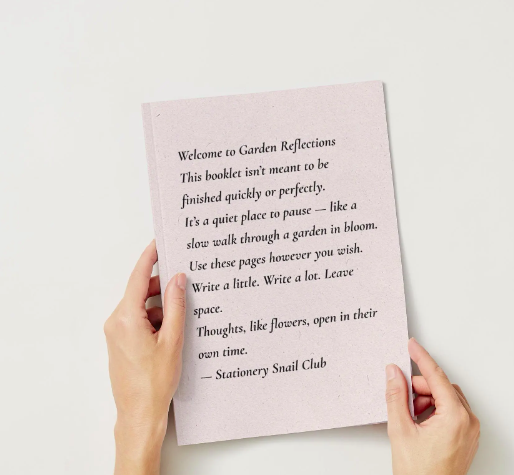 Welcome to Garden Reflections
This booklet isn't meant to be
finished quickly or perfectly.
It's a quiet place to pause — like a
slow walk through a garden in bloom.
Use these pages however you wish.
Write a little. Write a lot. Leave
space.
Thoughts, like flowers, open in their
own time.
— Stationery Snail Club